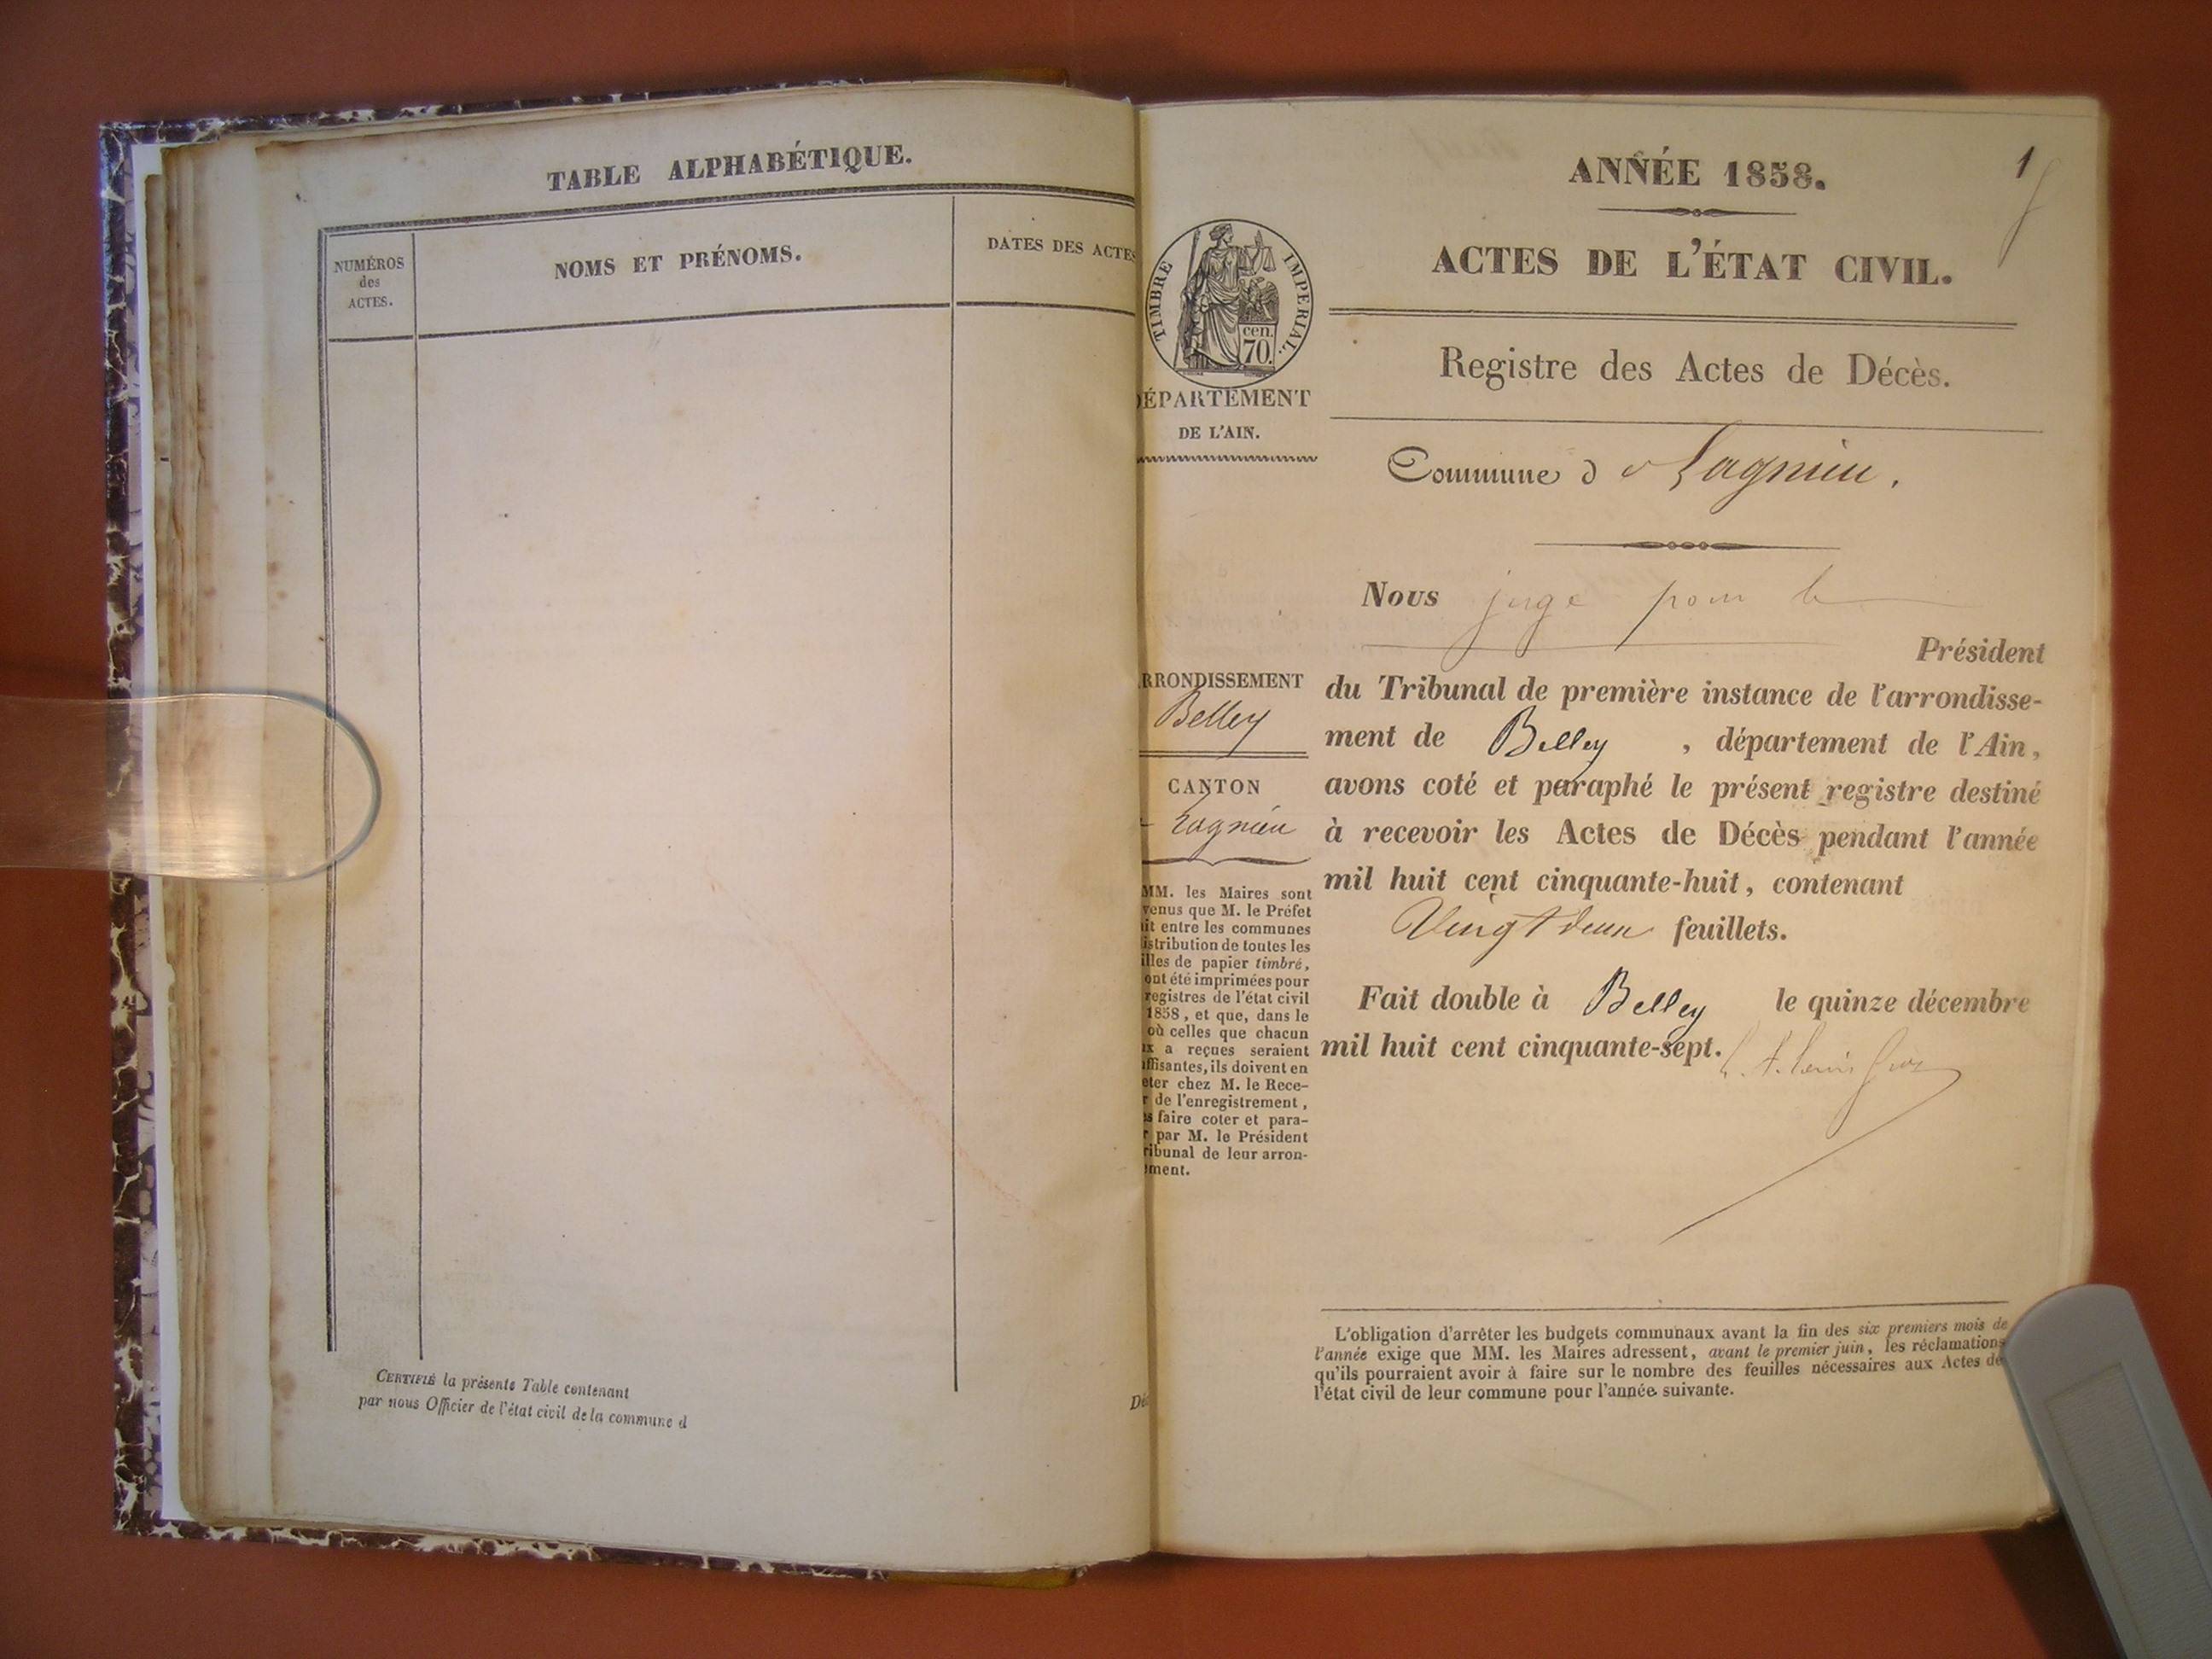 TABLE ALPHABÉTIQUE.
NUMÉROS
des
ACTES.
NOMS ET PRÉNOMS.
DATES DES ACTES
CERTIFIÉ la présente Table contenant
par nous Officier de l'état civil de la commune d
Déc
1
ANNÉE 1858.
ACTES DE L'ÉTAT CIVIL.
TIMBRE IMPERIAL.
cen.
70.
DÉPARTEMENT
DE L'AIN.
Registre des Actes de Décès.
Commune de Lagnieu.
Nous juge pour le
Président
du Tribunal de première instance de l'arrondisse-
ment de Belley, département de l'Ain,
avons coté et paraphé le présent registre destiné
à recevoir les Actes de Décès pendant l'année
mil huit cent cinquante-huit, contenant
Vingt deux feuillets.
Fait double à Belley le quinze décembre
mil huit cent cinquante-sept.
RRONDISSEMENT
Belley
CANTON
Lagnieu
MM. les Maires sont
venus que M. le Préfet
it entre les communes
istribution de toutes les
illes de papier timbré,
ont été imprimées pour
registres de l'état civil
1858, et que, dans le
où celles que chacun
ux a reçues seraient
ffisantes, ils doivent en
eter chez M. le Rece-
r de l'enregistrement,
s faire coter et para-
r par M. le Président
ribunal de leur arron-
ment.
L'obligation d'arrêter les budgets communaux avant la fin des six premiers mois de
l'année exige que MM. les Maires adressent, avant le premier juin, les réclamations
qu'ils pourraient avoir à faire sur le nombre des feuilles nécessaires aux Actes de
l'état civil de leur commune pour l'année suivante.